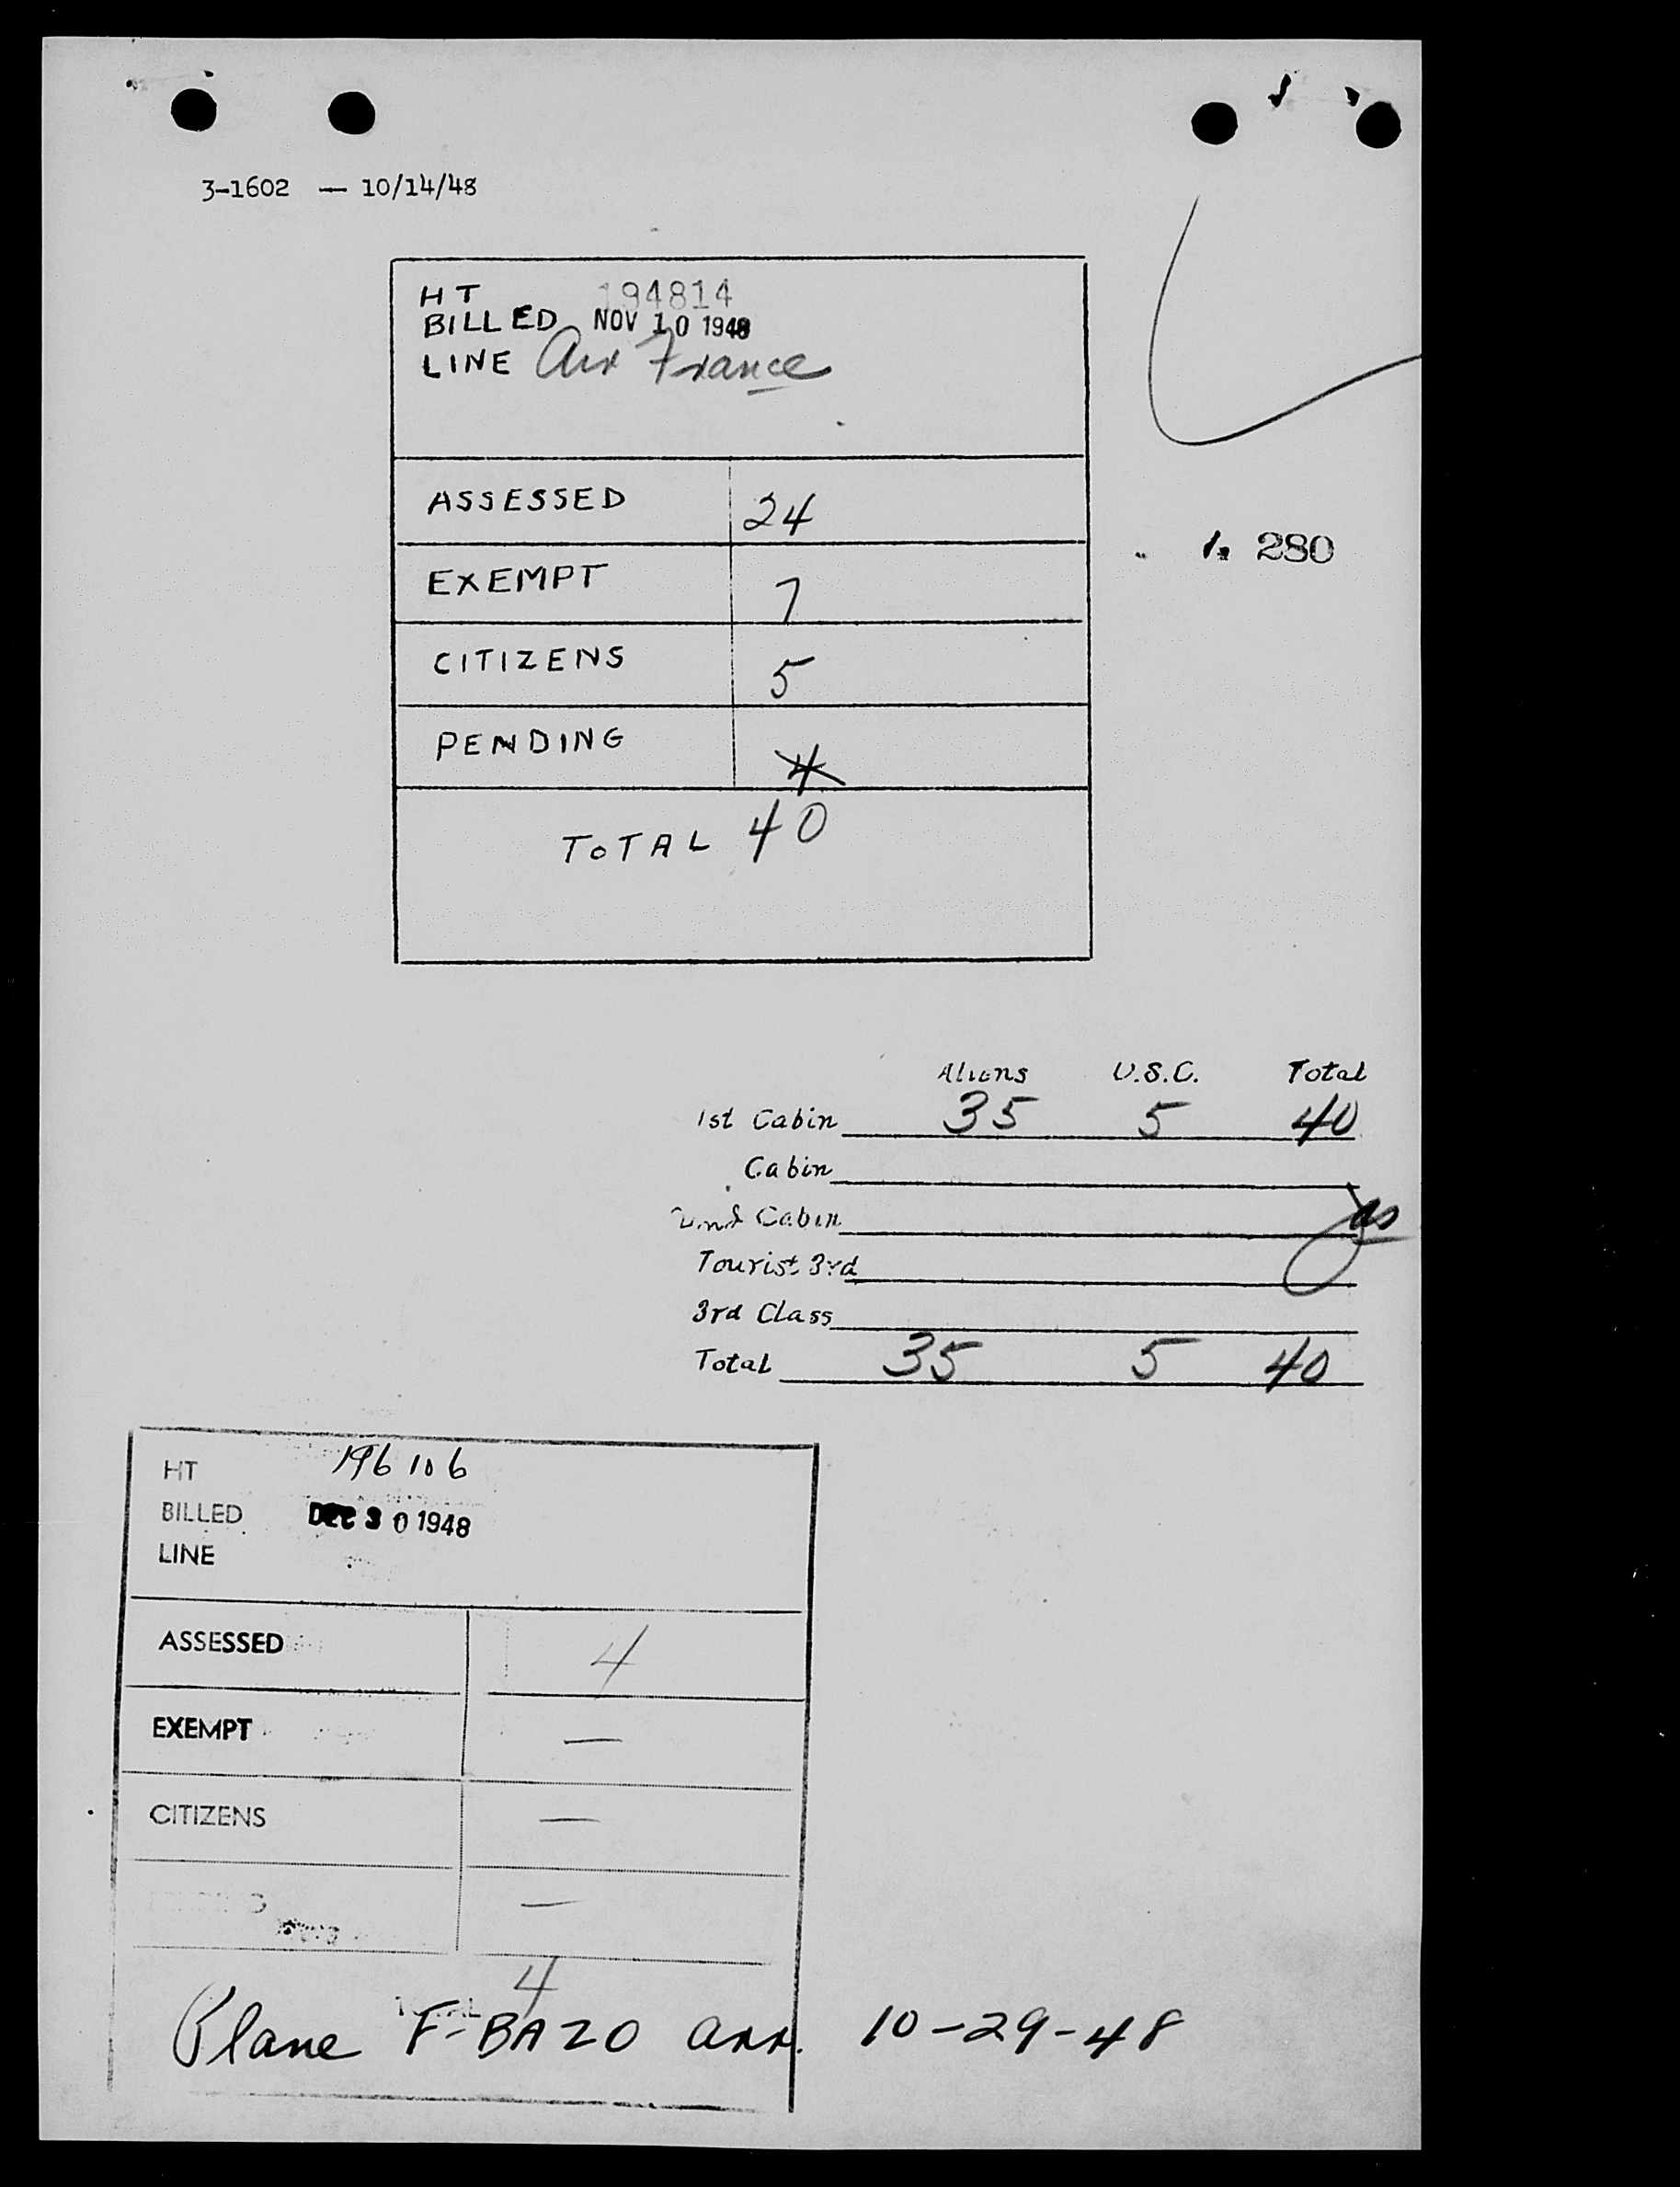 3-1602 — 10/14/48
HT 194814
BILLED NOV 10 1948
LINE Air France
ASSESSED 24
EXEMPT 7
CITIZENS 5
PENDING 4
TOTAL 40
280
Aliens U.S.C. Total
1st Cabin 35 5 40
Cabin
2nd Cabin
Tourist 3rd
3rd Class
Total 35 5 40
HT 196106
BILLED DEC 30 1948
LINE
ASSESSED 4
EXEMPT —
CITIZENS —
—
TOTAL 4
Plane F-BAZO arr. 10-29-48